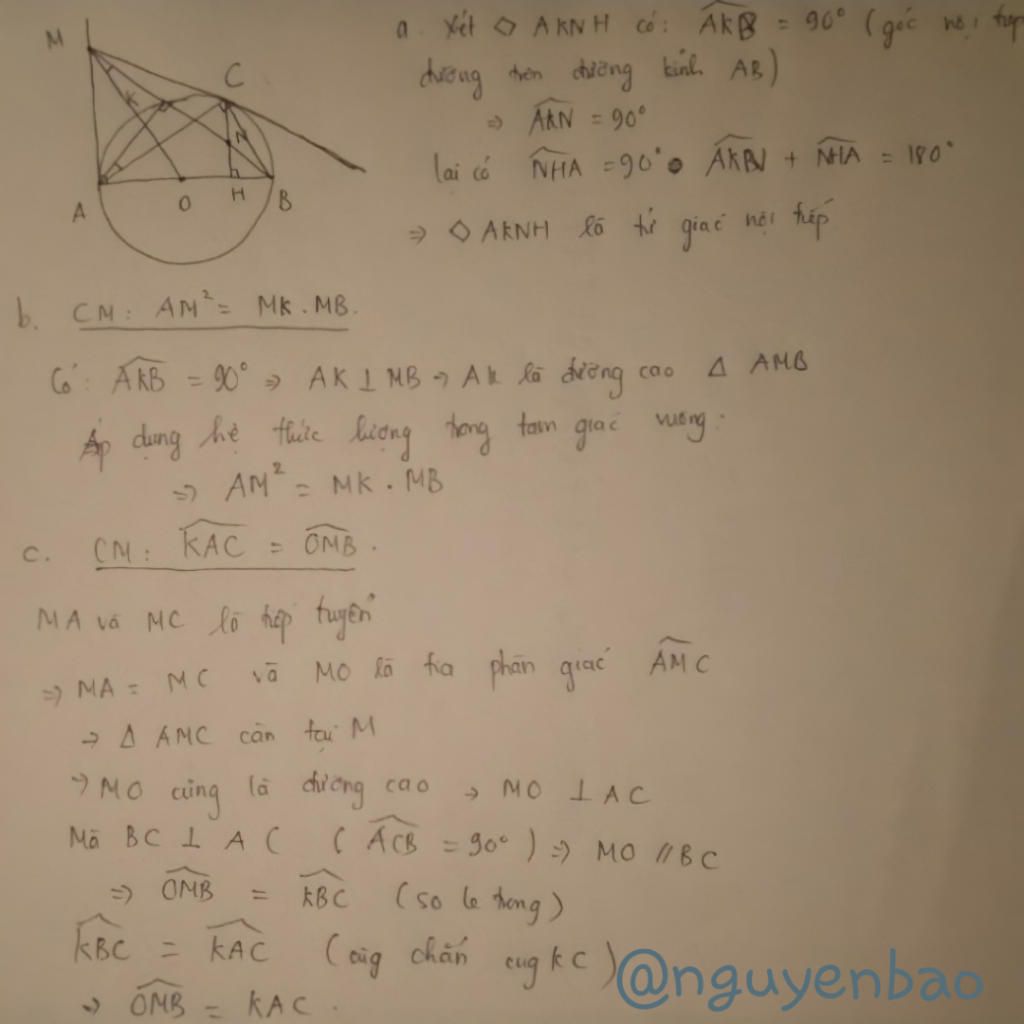 M
K
C
N
A
O
H
B
a. Xét ◇ AKNH có: $\widehat{AKB}$ = 90° (góc nội tiếp
đường tròn đường kính AB)
⇒ $\widehat{AKN}$ = 90°
lại có $\widehat{NHA}$ = 90° $\widehat{AKN}$ + $\widehat{NHA}$ = 180°
⇒ ◇ AKNH là tứ giác nội tiếp
b. CM: AM² = MK . MB.
Có: $\widehat{AKB}$ = 90° ⇒ AK ⊥ MB → AK là đường cao Δ AMB
Áp dụng hệ thức lượng trong tam giác vuông:
⇒ AM² = MK . MB
c. CM: $\widehat{KAC}$ = $\widehat{OMB}$.
MA và MC là tiếp tuyến
⇒ MA = MC và MO là tia phân giác $\widehat{AMC}$
→ Δ AMC cân tại M
→ MO cũng là đường cao → MO ⊥ AC
Mà BC ⊥ AC ($\widehat{ACB}$ = 90°) ⇒ MO // BC
⇒ $\widehat{OMB}$ = $\widehat{KBC}$ (so le trong)
$\widehat{KBC}$ = $\widehat{KAC}$ (cùng chắn cug KC)
→ $\widehat{OMB}$ = KAC.
@nguyenbao